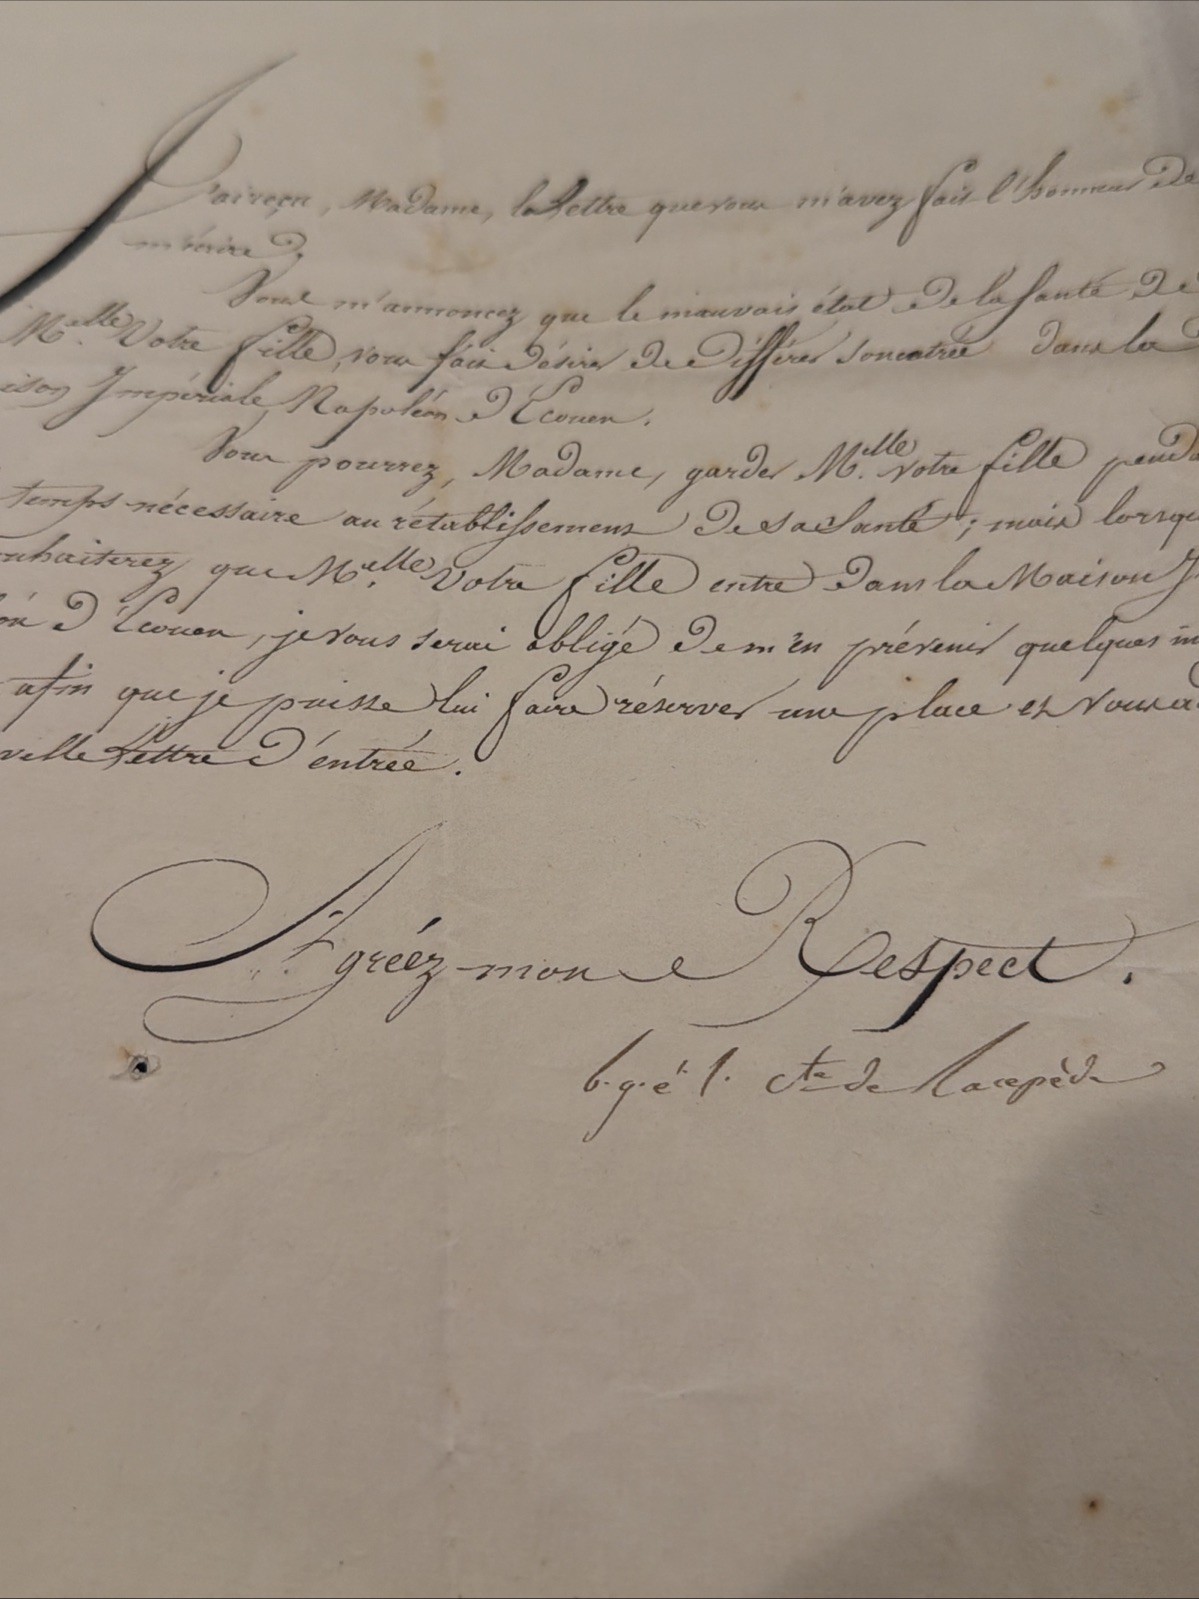 J'ai reçu, Madame, la Lettre que vous m'avez fait l'honneur de
m'écrire.
Vous m'annoncez que le mauvais état de la Santé de
Melle. Votre fille, vous fait désirer de différer son entrée dans la
ison Impériale Napoléon d'Ecouen.
Vous pourrez, Madame, garder Melle. votre fille penda
temps nécessaire au rétablissement de sa Santé; mais lorsqu
uhaiterez que Melle. Votre fille entre dans la Maison I
on d'Ecouen, je vous serai obligé de m'en prévenir quelques
afin que je puisse lui faire réserver une place et vous
velle Lettre d'entrée.
Agréez mon Respect.
b. g. é. l. cte de Lacepède